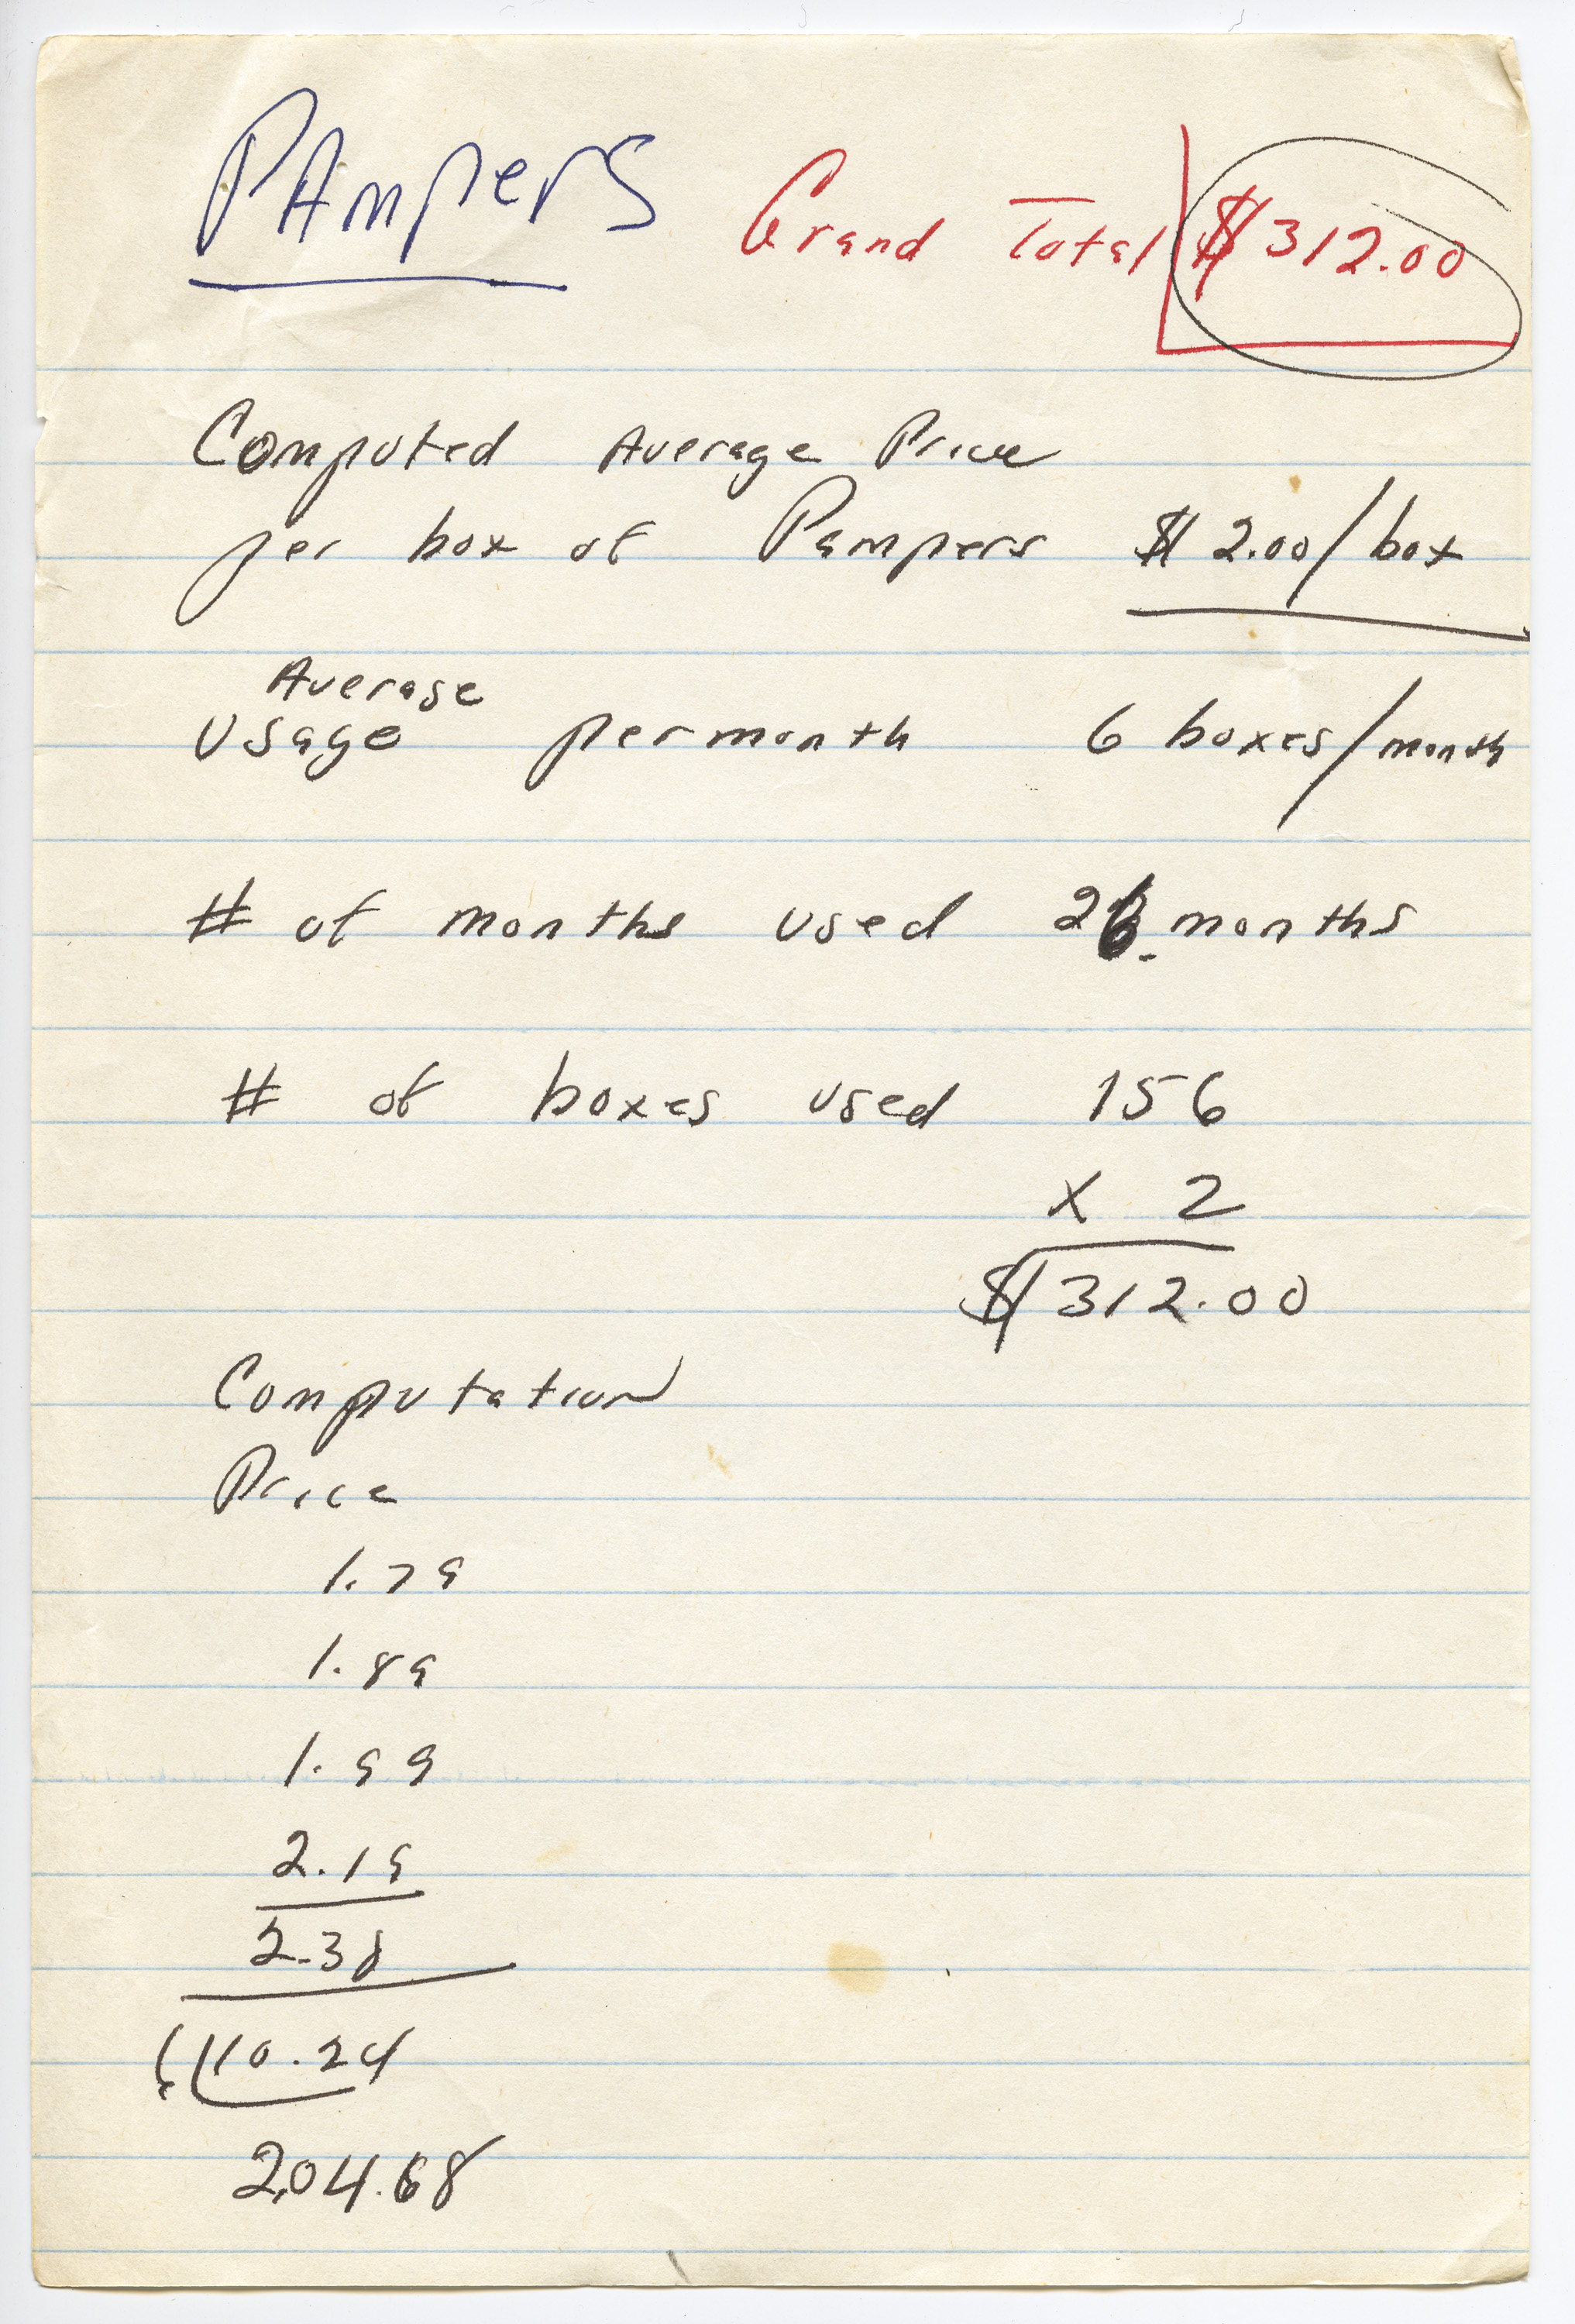 PAmpers
Grand Total $312.00
Computed Average Price
per box of Pampers $2.00/box
Average
Usage per month 6 boxes/month
# of months used 26 months
# of boxes used 156
x 2
$312.00
Computation
Price
1.79
1.89
1.99
2.19
2.38
10.24
2.04.68